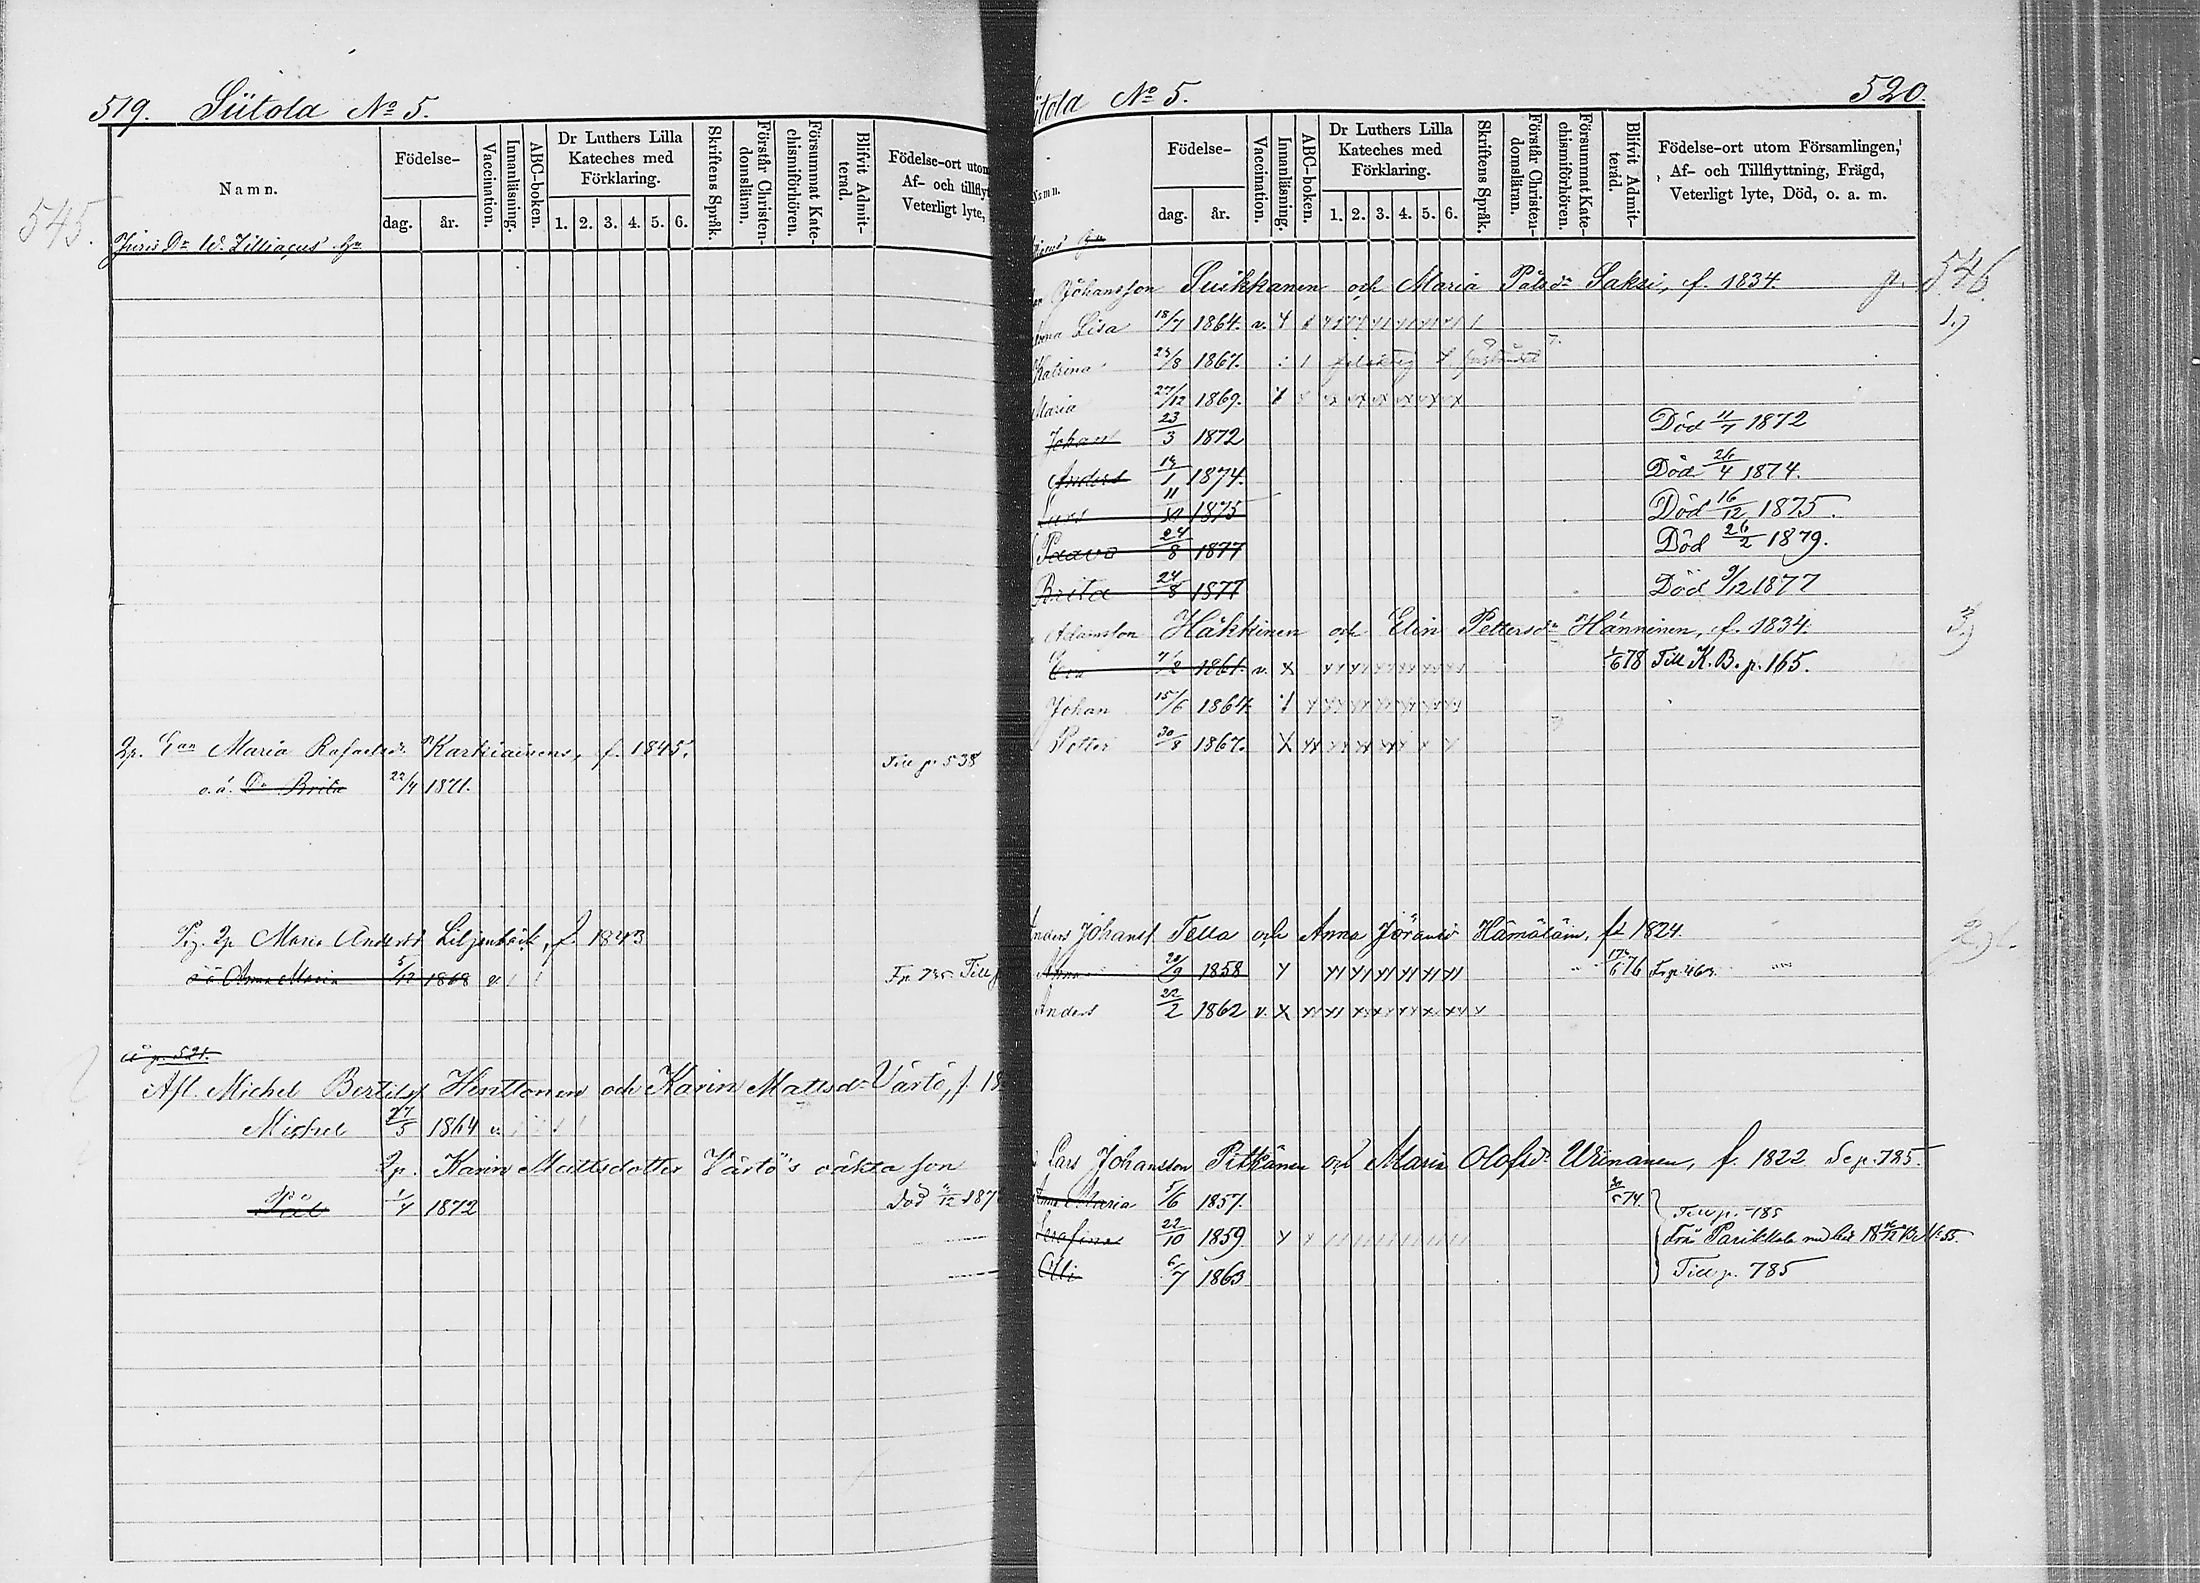 519. Siitola No 5.
545.
Namn.
Födelse-
dag.
år.
Vaccination.
Innanläsning.
ABC-boken.
Dr Luthers Lilla
Kateches med
Förklaring.
1. 2. 3. 4. 5. 6.
Skriftens Språk.
Förstår Christen-
domsläran.
Försummat Kate-
chismiförhören.
Blifvit Admit-
terad.
Födelse-ort utom
Af- och tillflyt
Veterligt lyte,
Juris Dr W. Lilliaçus
Maria Rafaelsdr Karhiainens, f. 1845.
Till p. 538
o.ä. Dr Brita 22/4 1871.
Maria Andersd Liljenbäck, f. 1843
Anna Maria 5/12 1868 v.
Fp. 735 Till
p. 521.
Afl. Michel Bertilsf Hinttonen och Karin Mattsdr Värtö, f. 18
Michel 27/5 1864 v.
Karin Mattsdotter Värtö's oäkta son
Pål 1/4 1872 Död
520.
itola No 5.
Namn.
Födelse-
dag.
år.
Vaccination.
Innanläsning.
ABC-boken.
Dr Luthers Lilla
Kateches med
Förklaring.
1. 2. 3. 4. 5. 6.
Skriftens Språk.
Förstår Christen-
domsläran.
Försummat Kate-
chismiförhören.
Blifvit Admit-
terad.
Födelse-ort utom Församlingen,
Af- och Tillflyttning, Frägd,
Veterligt lyte, Död, o. a. m.
Johansson Suikkanen och Maria Pålsdr Saksi, f. 1834. p. 546.
Anna Lisa 18/7 1864. v. 1.)
Katrina 23/8 1867.
Maria 27/12 1869.
Johan 23/3 1872 Död 11/7 1872
Anders 13/1 1874. Död 26/4 1874.
Lars 11/XI 1875 Död 16/12 1875.
Paavo 24/8 1877 Död 26/2 1879.
Brita 24/8 1877 Död 9/12 1877
Adamsson Häkkinen och Elin Pettersdr Hänninen, f. 1834. 3.)
Eva 7/2 1861. v. x 1/6 78 Till K. B. p. 165.
Johan 15/6 1864.
Petter 30/8 1867.
Anders Johansf Tella och Anna Göransd Hämäläin, f. 1824.
Anna 20/9 1858 76
Anders 22/2 1862 v.
Lars Johansson Pitkänen och Maria Olofsd. Urinanen, f. 1822 Se p. 785.
Anna Maria 5/6 1857. 74.
Till p. 785
Serafina 22/10 1859
Från Parikkala
Olli 6/7 1863 Till p. 785